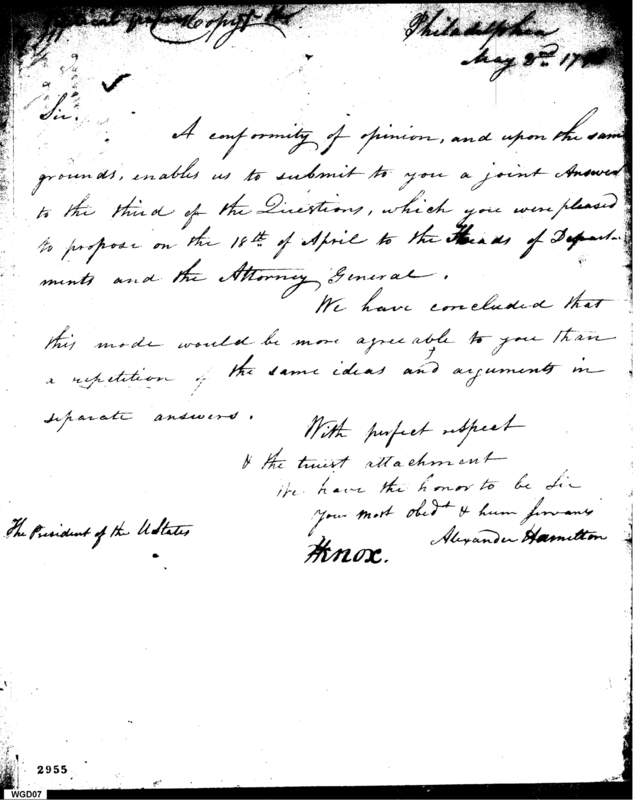 Copy
Philadelphia
May 2nd 179
Sir.
A conformity of opinion, and upon the same
grounds, enables us to submit to you a joint Answer
to the third of the Questions, which you were pleased
to propose on the 18th of April to the Heads of Depart-
ments and the Attorney General.
We have concluded that
this mode would be more agreeable to you than
a repetition of the same ideas and arguments in
separate answers.
With perfect respect
& the truest attachment
We have the honor to be Sir
Your most Obedt & hum servants
The President of the UStates
Alexander Hamilton
HKnox.
2955
WGD07